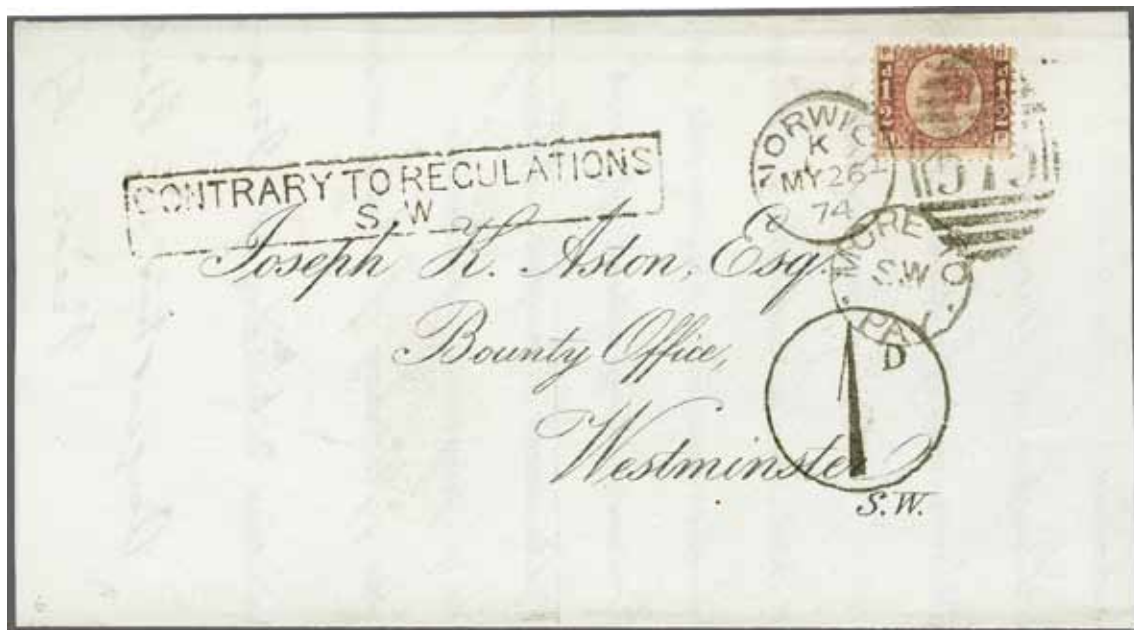 CONTRARY TO REGULATIONS
S.W
NORWIC
K
MY 26
74
d
1
2
d
1
2
P
575
MORE TO
S.W
PAY
1
D
S.W.
Joseph K. Aston, Esq.
Bounty Office,
Westminster